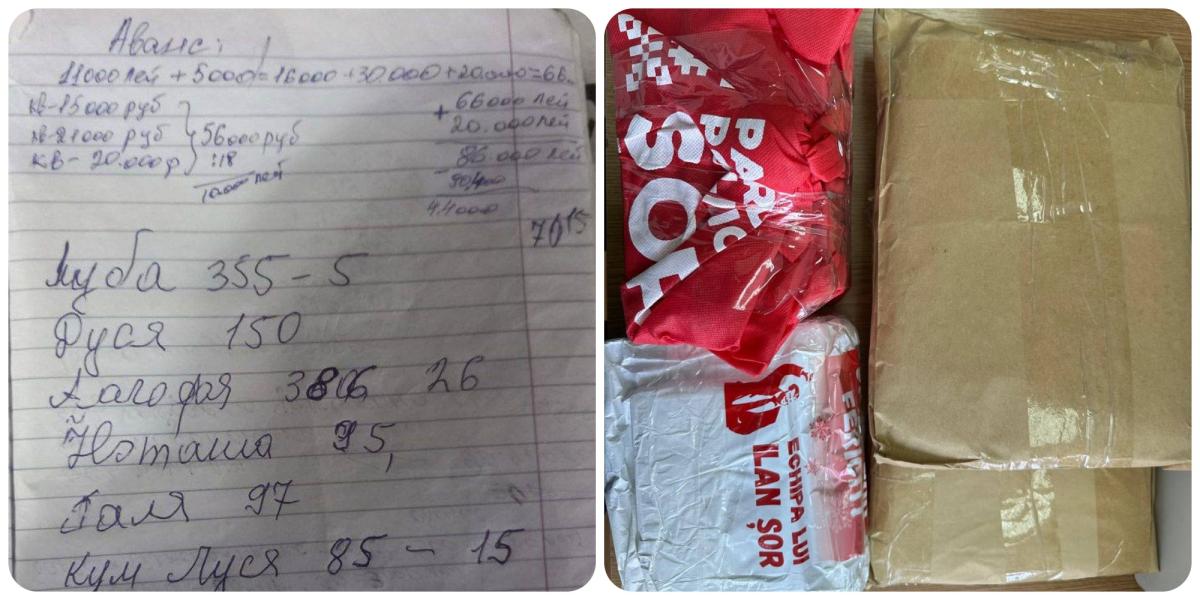 Аванс:
11000 лей + 5000 = 16000 + 30.000 + 20.000 = 66
кв - 15000 руб
кв - 21000 руб
кв - 20.000 р
56000 руб
:18
66000 лей
+ 20.000 лей
86.000 лей
44000
70 15
Луба 355 - 5
Дуся 150
26
Нэташа 95,
Галя 97
кум Луся 85 - 15
PAR
POLIC
ȘOR
ECHIPA LUI
ILAN ȘOR